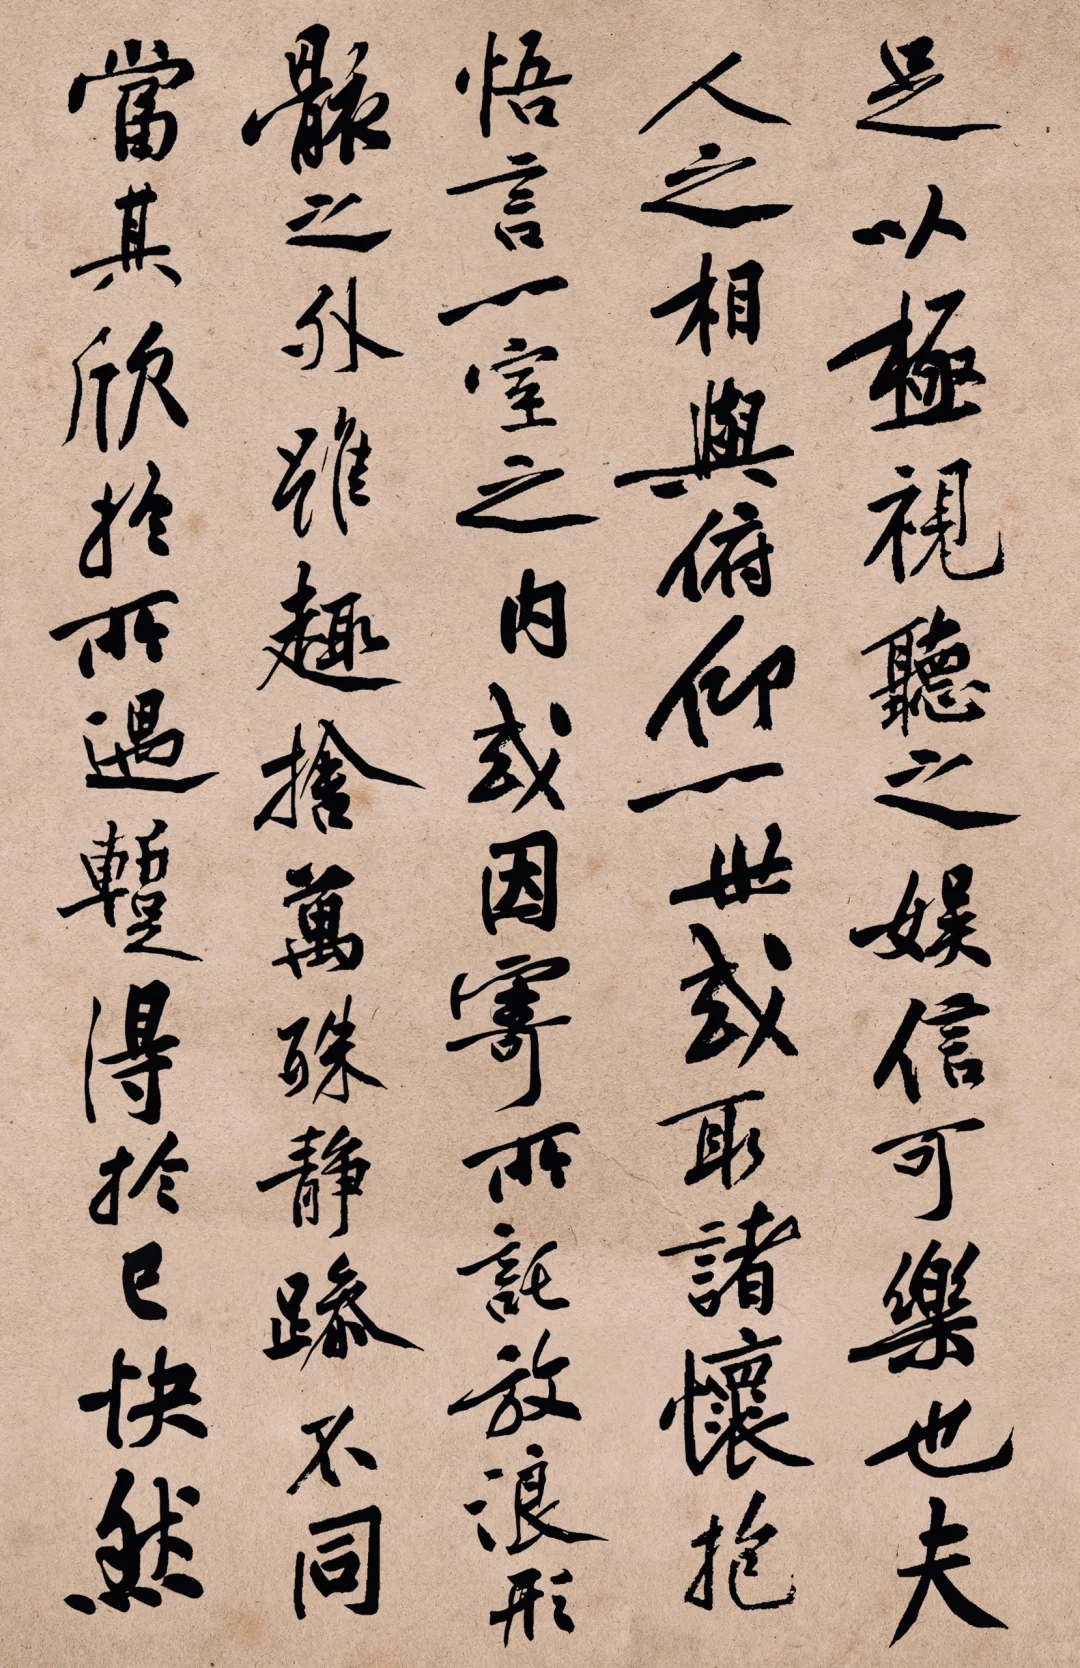 足以極視聽之娛信可樂也夫
人之相與俯仰一世或取諸懷抱
悟言一室之內或因寄所託放浪形
骸之外雖趣舍萬殊靜躁不同
當其欣於所遇暫得於己快然